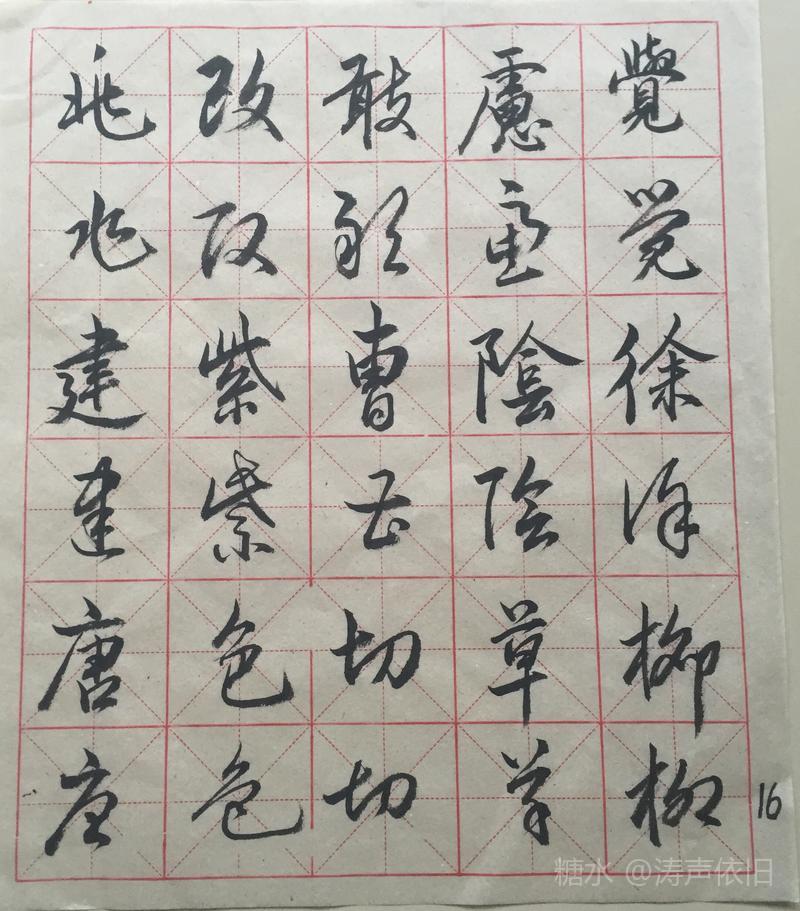 覺覺徐徐柳柳
慮慮陰陰草草
敢敢曹曹切切
改改紫紫色色
兆兆建建唐唐
16
糖水 @涛声依旧